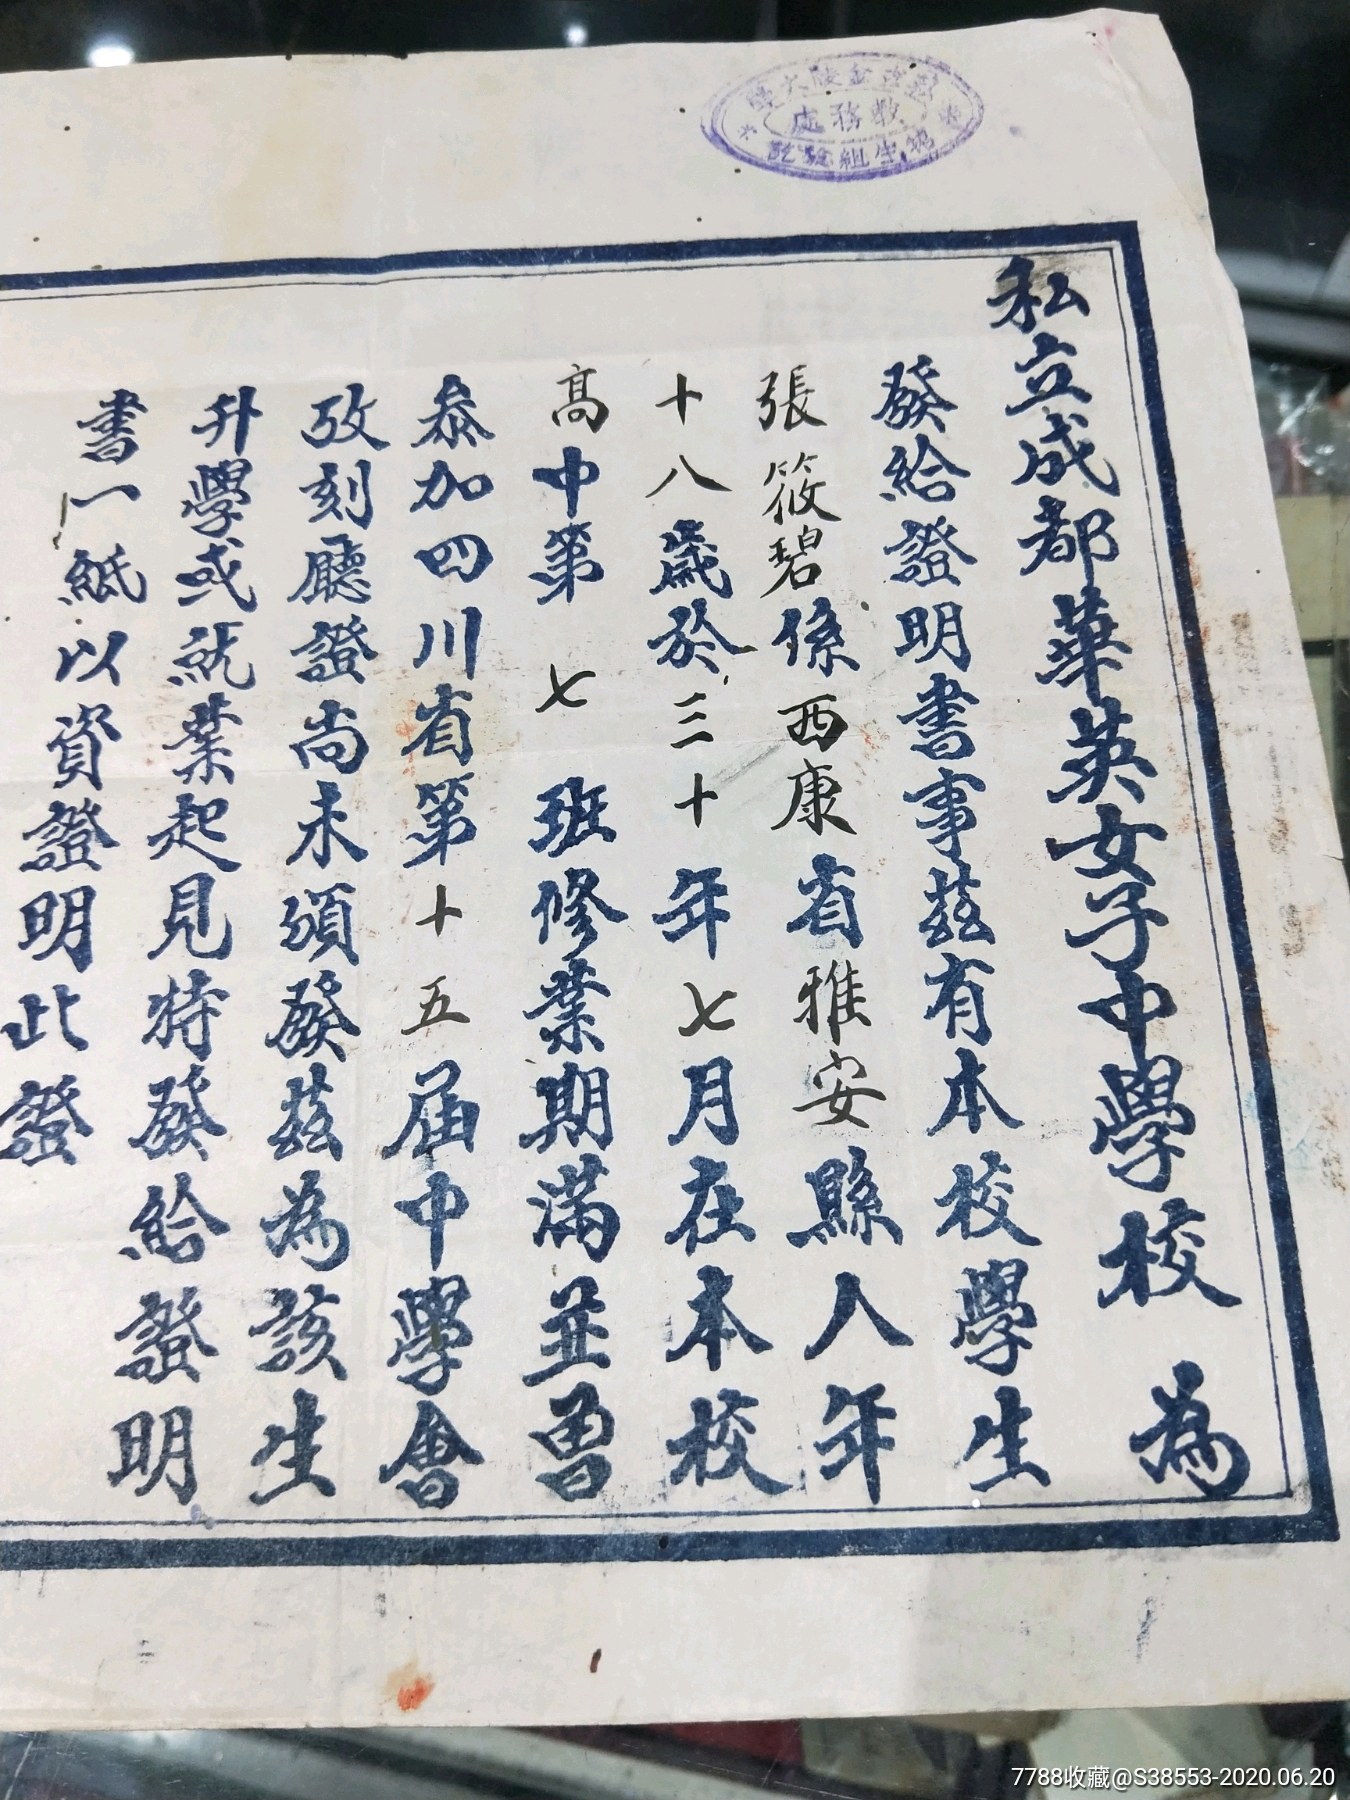 私立金陵大學
教務處
註生組驗訖
私立成都華英女子中學校 為
發給證明書事茲有本校學生
張筱碧係西康省雅安縣人年
十八歲於三十年七月在本校
高中第七班修業期滿並曾
叅加四川省第十五屆中學會
攷刻廳證尚未頒發茲為該生
升學或就業起見特發給證明
書一紙以資證明此證
7788收藏@S38553-2020.06.20